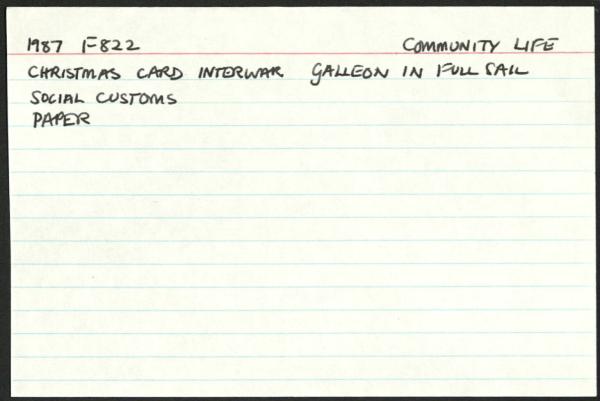 1987 F822 COMMUNITY LIFE
CHRISTMAS CARD INTERWAR GALLEON IN FULL SAIL
SOCIAL CUSTOMS
PAPER